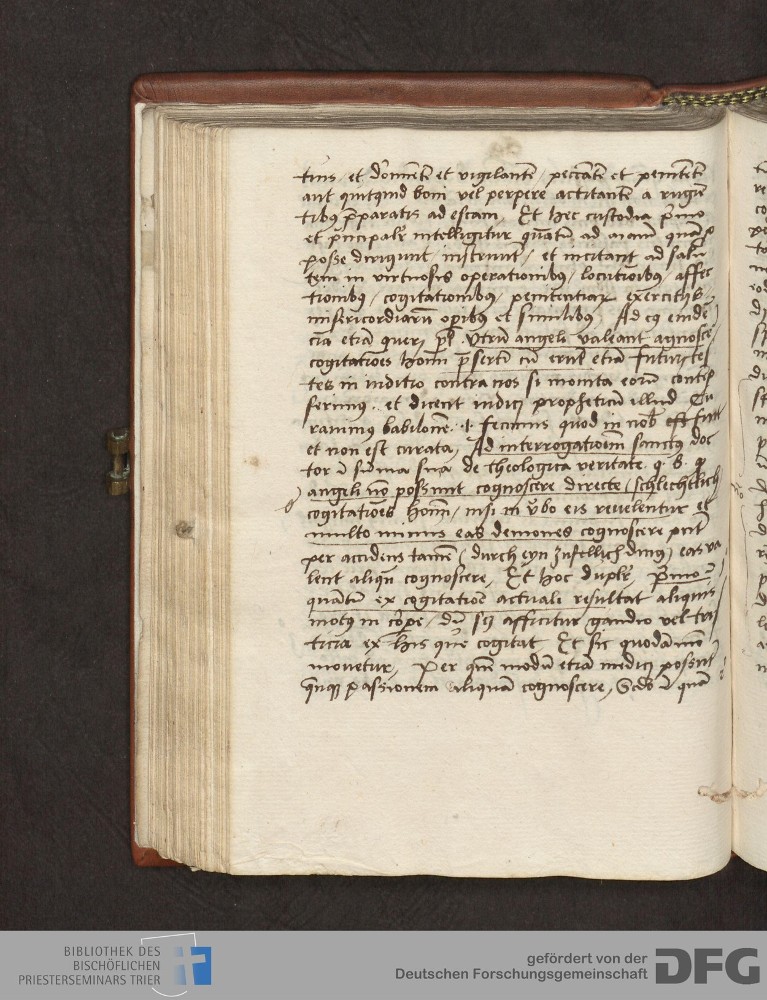 et dormiente et vigilante / peccante et penitente
aut quitquid boni vel perpere actitante a rugien
tibus preparatis ad escam, Et hec custodia primo
et principaliter intelligitur quantum ad animam quam
posse dirigunt / instruunt / et incitant ad salu
tem in virtuosis operationibus / locutionibus / affec
tionibus / cogitationibus / penitentiarum exercitiis
misericordiarum operibus et similibus, Ad
etiam queri Utrum angeli valeant agnosce
cogitationes hominum presertim cum erunt etiam futuri tes
tes in iuditio contra nos si monita eorum contemp
serimus. et dicent iudici propheticum illud Cu
ravimus babilonem. fecimus quod in nobis
et non est curata, Ad interrogationem sanctus doc
tor in summa sua de theologica veritate. q. 8. q
angeli non possunt cognoscere directe / schlechtlich
cogitationes hominum / nisi in verbo eis revelentur et
multo minus eas demones cognoscere
per accidens tamen / durch eyn zufellich dinng / eas va
lent aliquando cognoscere, Et hoc dupliciter, Primo in
quantum ex cogitatione actuali resultat aliquis
motus in corpore / dum scilicet afficitur gaudio vel tris
ticia ex his que cogitat Et sic quodammodo
movetur, Per quem modum etiam medici possunt
passionem aliquam cognoscere, Secundo in quan
BIBLIOTHEK DES
BISCHÖFLICHEN
PRIESTERSEMINARS TRIER
gefördert von der
Deutschen Forschungsgemeinschaft
DFG